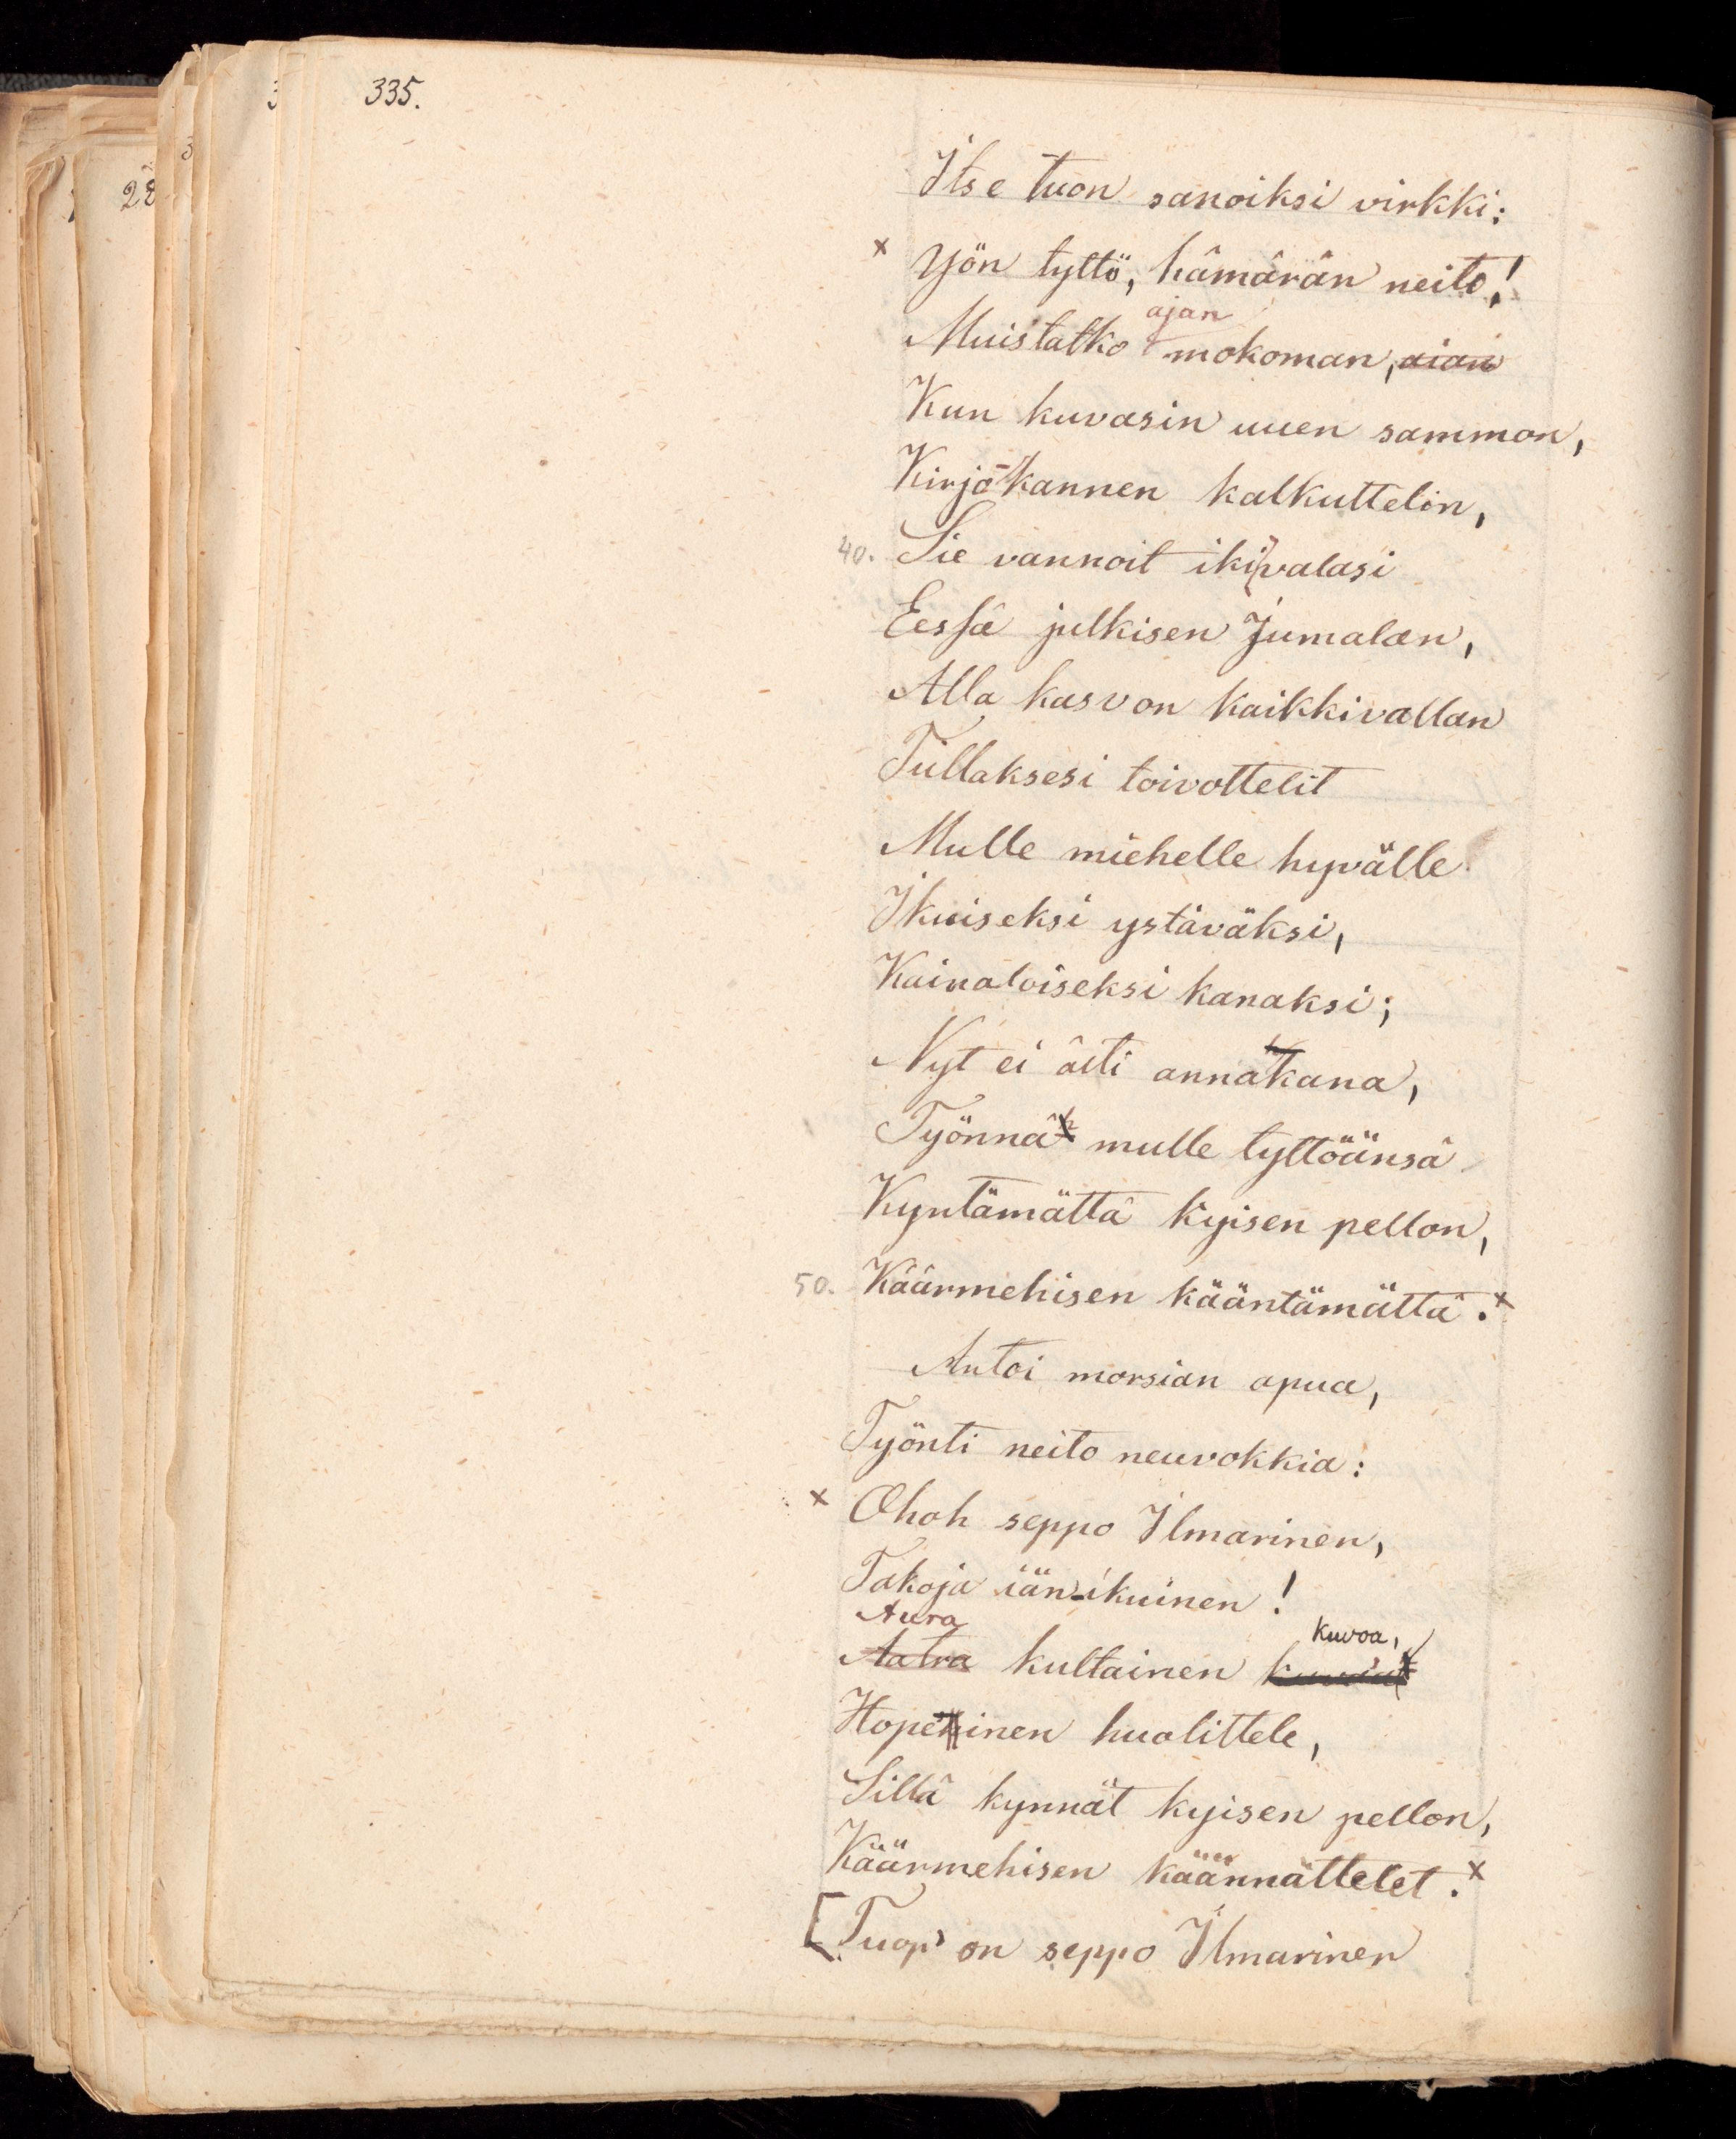 335.
28
Itse tuon sanoiksi virkki:
× Yön tyttö, hämärän neito!
ajan
Muistatko mokoman, aian
Kun kuvasin uuen sammon,
Kirjo-kannen kalkuttelin,
40. Sie vannoit ikivalasi
Eessä julkisen Jumalan,
Alla kasvon kaikkivallan
Tullaksesi toivottelit
Mulle miehelle hyvälle
Ikuiseksi ystäväksi,
Kainaloiseksi kanaksi;
Nyt ei äiti annakana,
Työnnä mulle tyttöänsä
Kyntämättä kyisen pellon,
50. Käärmehisen kääntämättä. ×
Antoi morsian apua,
Työnti neito neuvokkia:
× Ohoh seppo Ilmarinen,
Takoja iän-ikuinen!
Aura kuvoa,
Aatra kultainen
Hopehinen huolittele,
Sillä kynnät kyisen pellon,
Käärmehisen käännättelet. ×
[Tuop' on seppo Ilmarinen